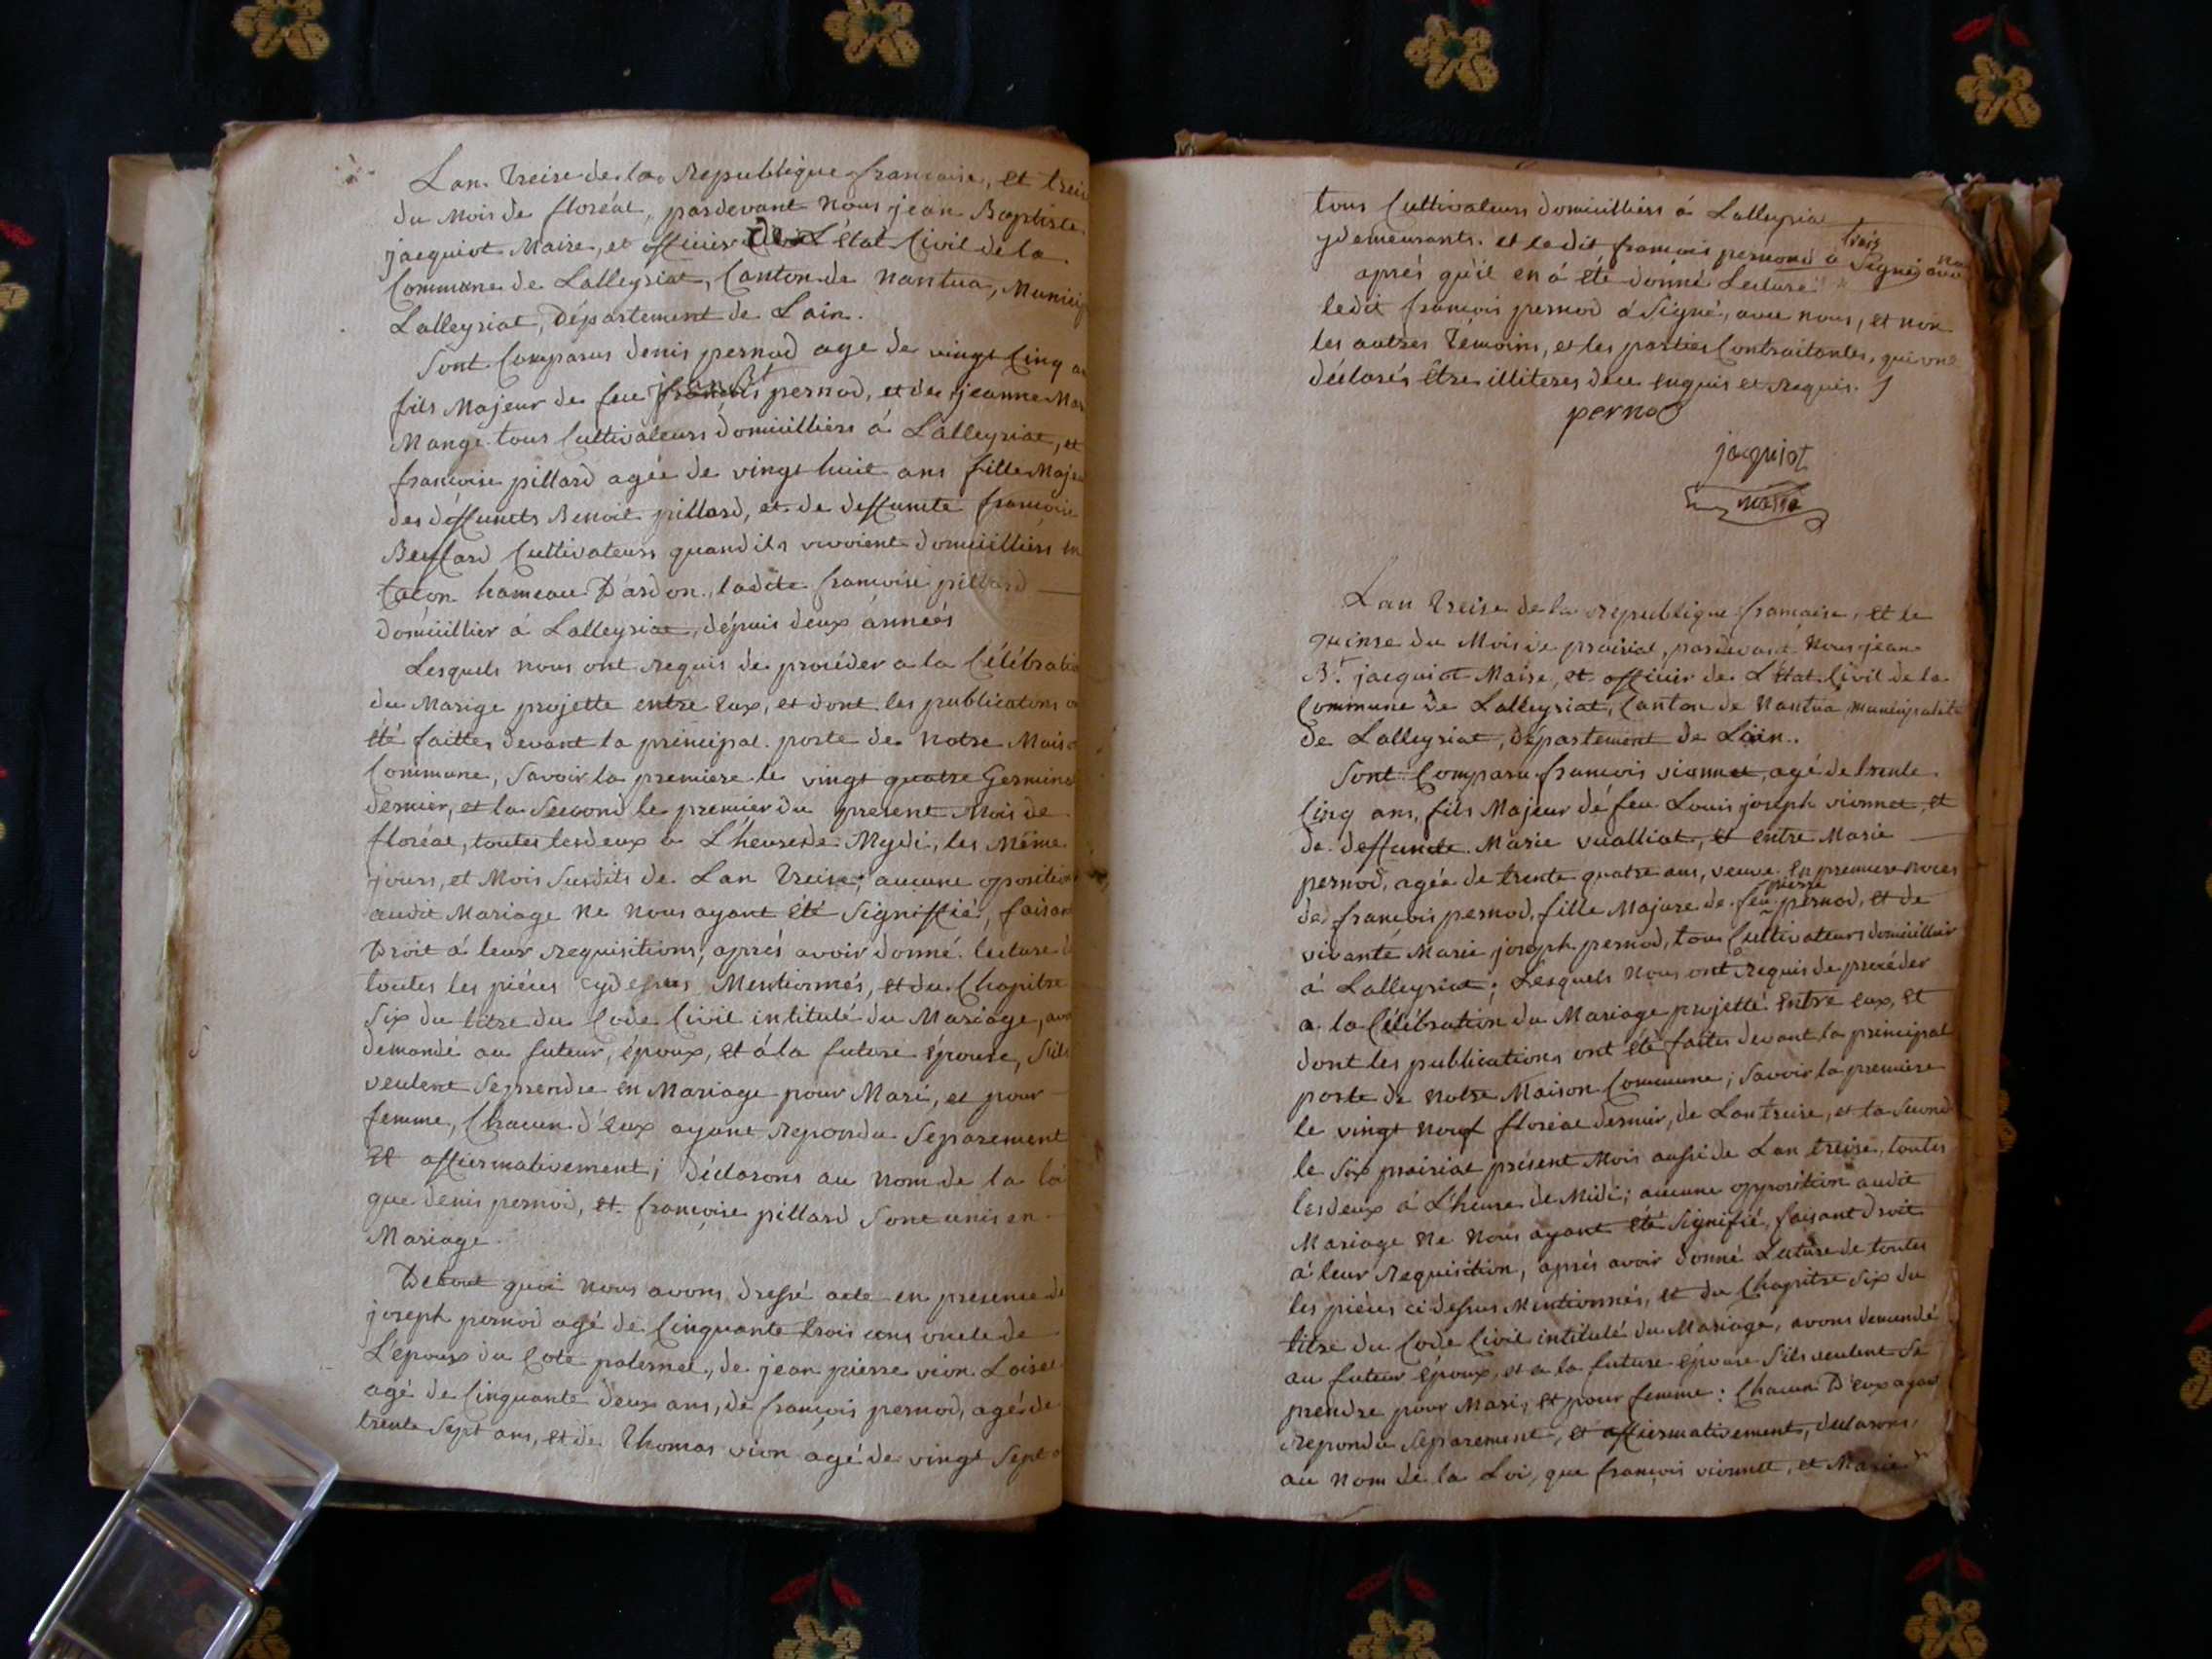 Lan treise de la Republique francaise, et treis
du Mois de floréal, pardevant Nous jean Baptiste
jacquiot Maire, et officier de L'état Civil de la
Commune de Lalleyriat, Canton de Nantua, Municip
Lalleyriat, Département de Lain.
Sont Comparus denis pernod age de vingt Cinq a
fils Majeur de feu jean Bt pernod, et de jeanne Mar
Mange tous Cultivateurs domicilliers á Lalleyriat, et
francoise pillard agée de vingt huit ans fille Maje
des déffuncts Benoit pillard, et de deffuncte francoise
Beuffard Cultivateurs quand ils vivoient domicilliers en
talon hameau D'ardon, ladite francoise pillard
domicillier á Lalleyriat, dépuis deux ánneés
Lesquels nous ont requis de procéder a la Célébratio
du Marige projette entre Eux, et dont les publications o
été faittes devant la principal porte de Notre Maiso
Commune, Savoir la premiere le vingt quatre Germina
dernier, et la Second le premier du present Mois de
floréal, toutes les deux a L'heure de Mydi, les Même
jours, et Mois Susdits de Lan treise; aucune opositio
audit Mariage Ne Nous ayant été Signiffié, faisan
Droit á leur requisitions; aprés avoir donné lecture d
toutes les piéces cydessus Mentionnés, et du Chapitre
Six du titre du Code Civil intitulé du Mariage, avo
demandé au futeur, époux, et á la future épouse, S'ils
veulent Se prendre en Mariage pour Mari, et pour
femme, Chacun d'Eux ayant repondu Separement
et affiermativement; déclarons au Nom de la loi
que denis pernod, et francoise pillard Sont unis en
Mariage.
De tout quoi Nous avons dressé acte en presence de
joseph pernod agé de Cinquante trois ans oncle de
L'epoux du Coté paternel, de jean pierre vion Loisel
agé de Cinquante deux ans, de francois pernod, agé de
trente Sept ans, et de Thomas vion agé de vingt Sept a
tous Cultivateurs domicilliers á Lalleyriat
y demeurants. et le dit francois pernod á Signé, avec
aprés qu'il en á été donné Lecture
ledit francois pernod á Signé, avec nous, et non
les autres Témoins, et les parties Contraitantes, qui ont
déclarés être illiteres dece enquis et requis.
pernod
jacquiot
maire
Lan treise de la republique francaise, et le
quinse du Mois de prairial, pardevant Nous jean
Bt. jacquiot Maire, et officier de L'état Civil de la
Commune de Lalleyriat, Canton de Nantua, municipalité
de Lalleyriat, département de Lain.
Sont Comparu francois vionnet, agé de trente
Cinq ans, fils Majeur de feu Louis joseph vionnet, et
de deffuncte Marie vualliat, et entre Marie
pernod, agée de trente quatre ans, veuve En premiere noces
de francois pernod, fille Majure de feu pierre pernod, et de
vivante Marie joseph pernod, tous Cultivateurs domicillier
á Lalleyriat; Lesquels Nous ont requis de procéder
a la Célébration du Mariage projetté Entre Eux, et
dont les publications ont été faites devant la principal
porte de Notre Maison Commune; Savoir la premiere
le vingt Neuf floréal dernier, de Lan treise, et la Second
le Six prairial présent Mois aussi de Lan treise, toutes
les deux á L'heure de Midi; aucune opposition audit
Mariage Ne Nous ayant été Signifié, faisant droit
á leur requisition, aprés avoir donné Lecture de toutes
les piéces ci dessus Mentionnés, et du Chapitre Six du
titre du Code Civil intitulé du Mariage, avons demandé
au futeur époux, et a la future épouse S'ils veulent Se
prendre pour Mari, et pour femme: Chacun D'eux ayant
repondu Séparement, et affiermativement, declarons,
au Nom de la Loi, que francois vionnet, et Marie